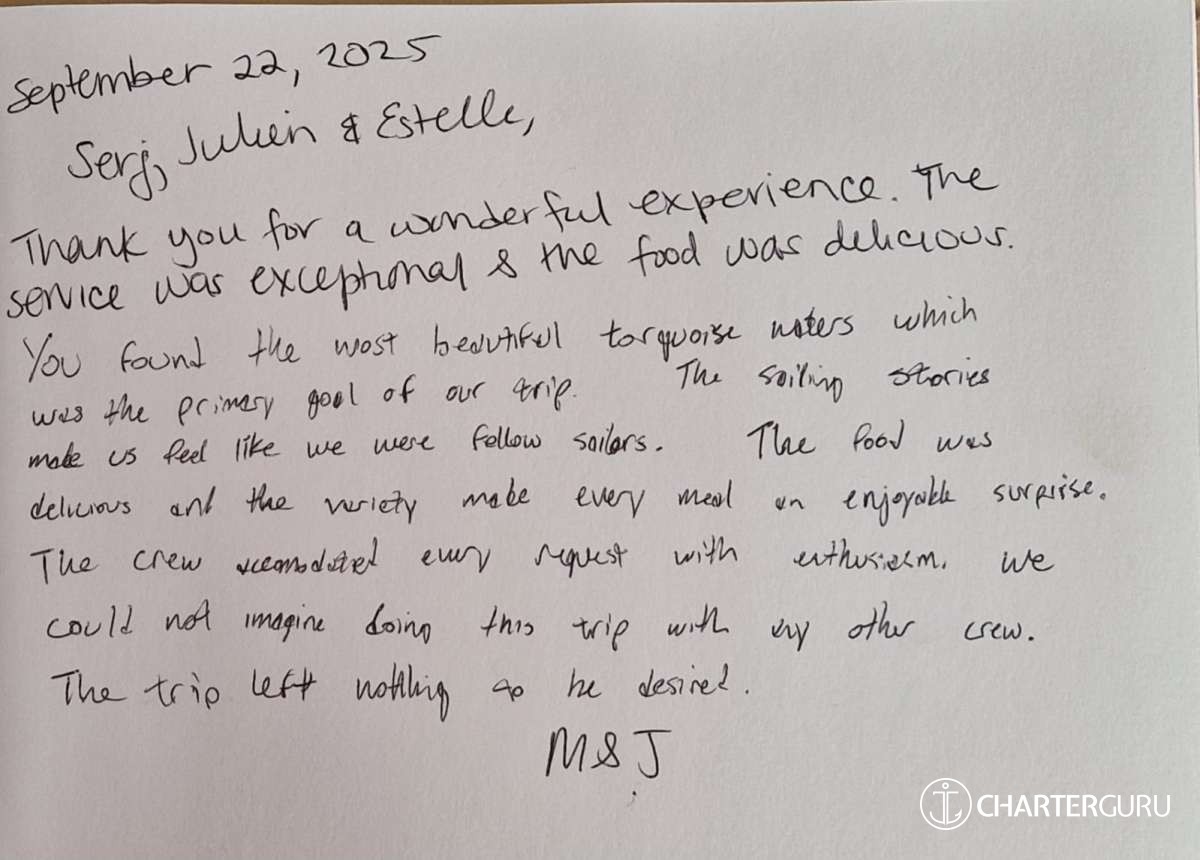 September 22, 2025
Serj, Julien & Estelle,
Thank you for a wonderful experience. The
service was exceptional & the food was delicious.
You found the most beautiful torquoise waters which
was the primary goal of our trip. The sailing stories
made us feel like we were fellow sailors. The food was
delicious and the variety made every meal an enjoyable surprise.
The crew accomodated every request with enthusiasm. We
could not imagine doing this trip with any other crew.
The trip left nothing to be desired.
M & J
CHARTERGURU